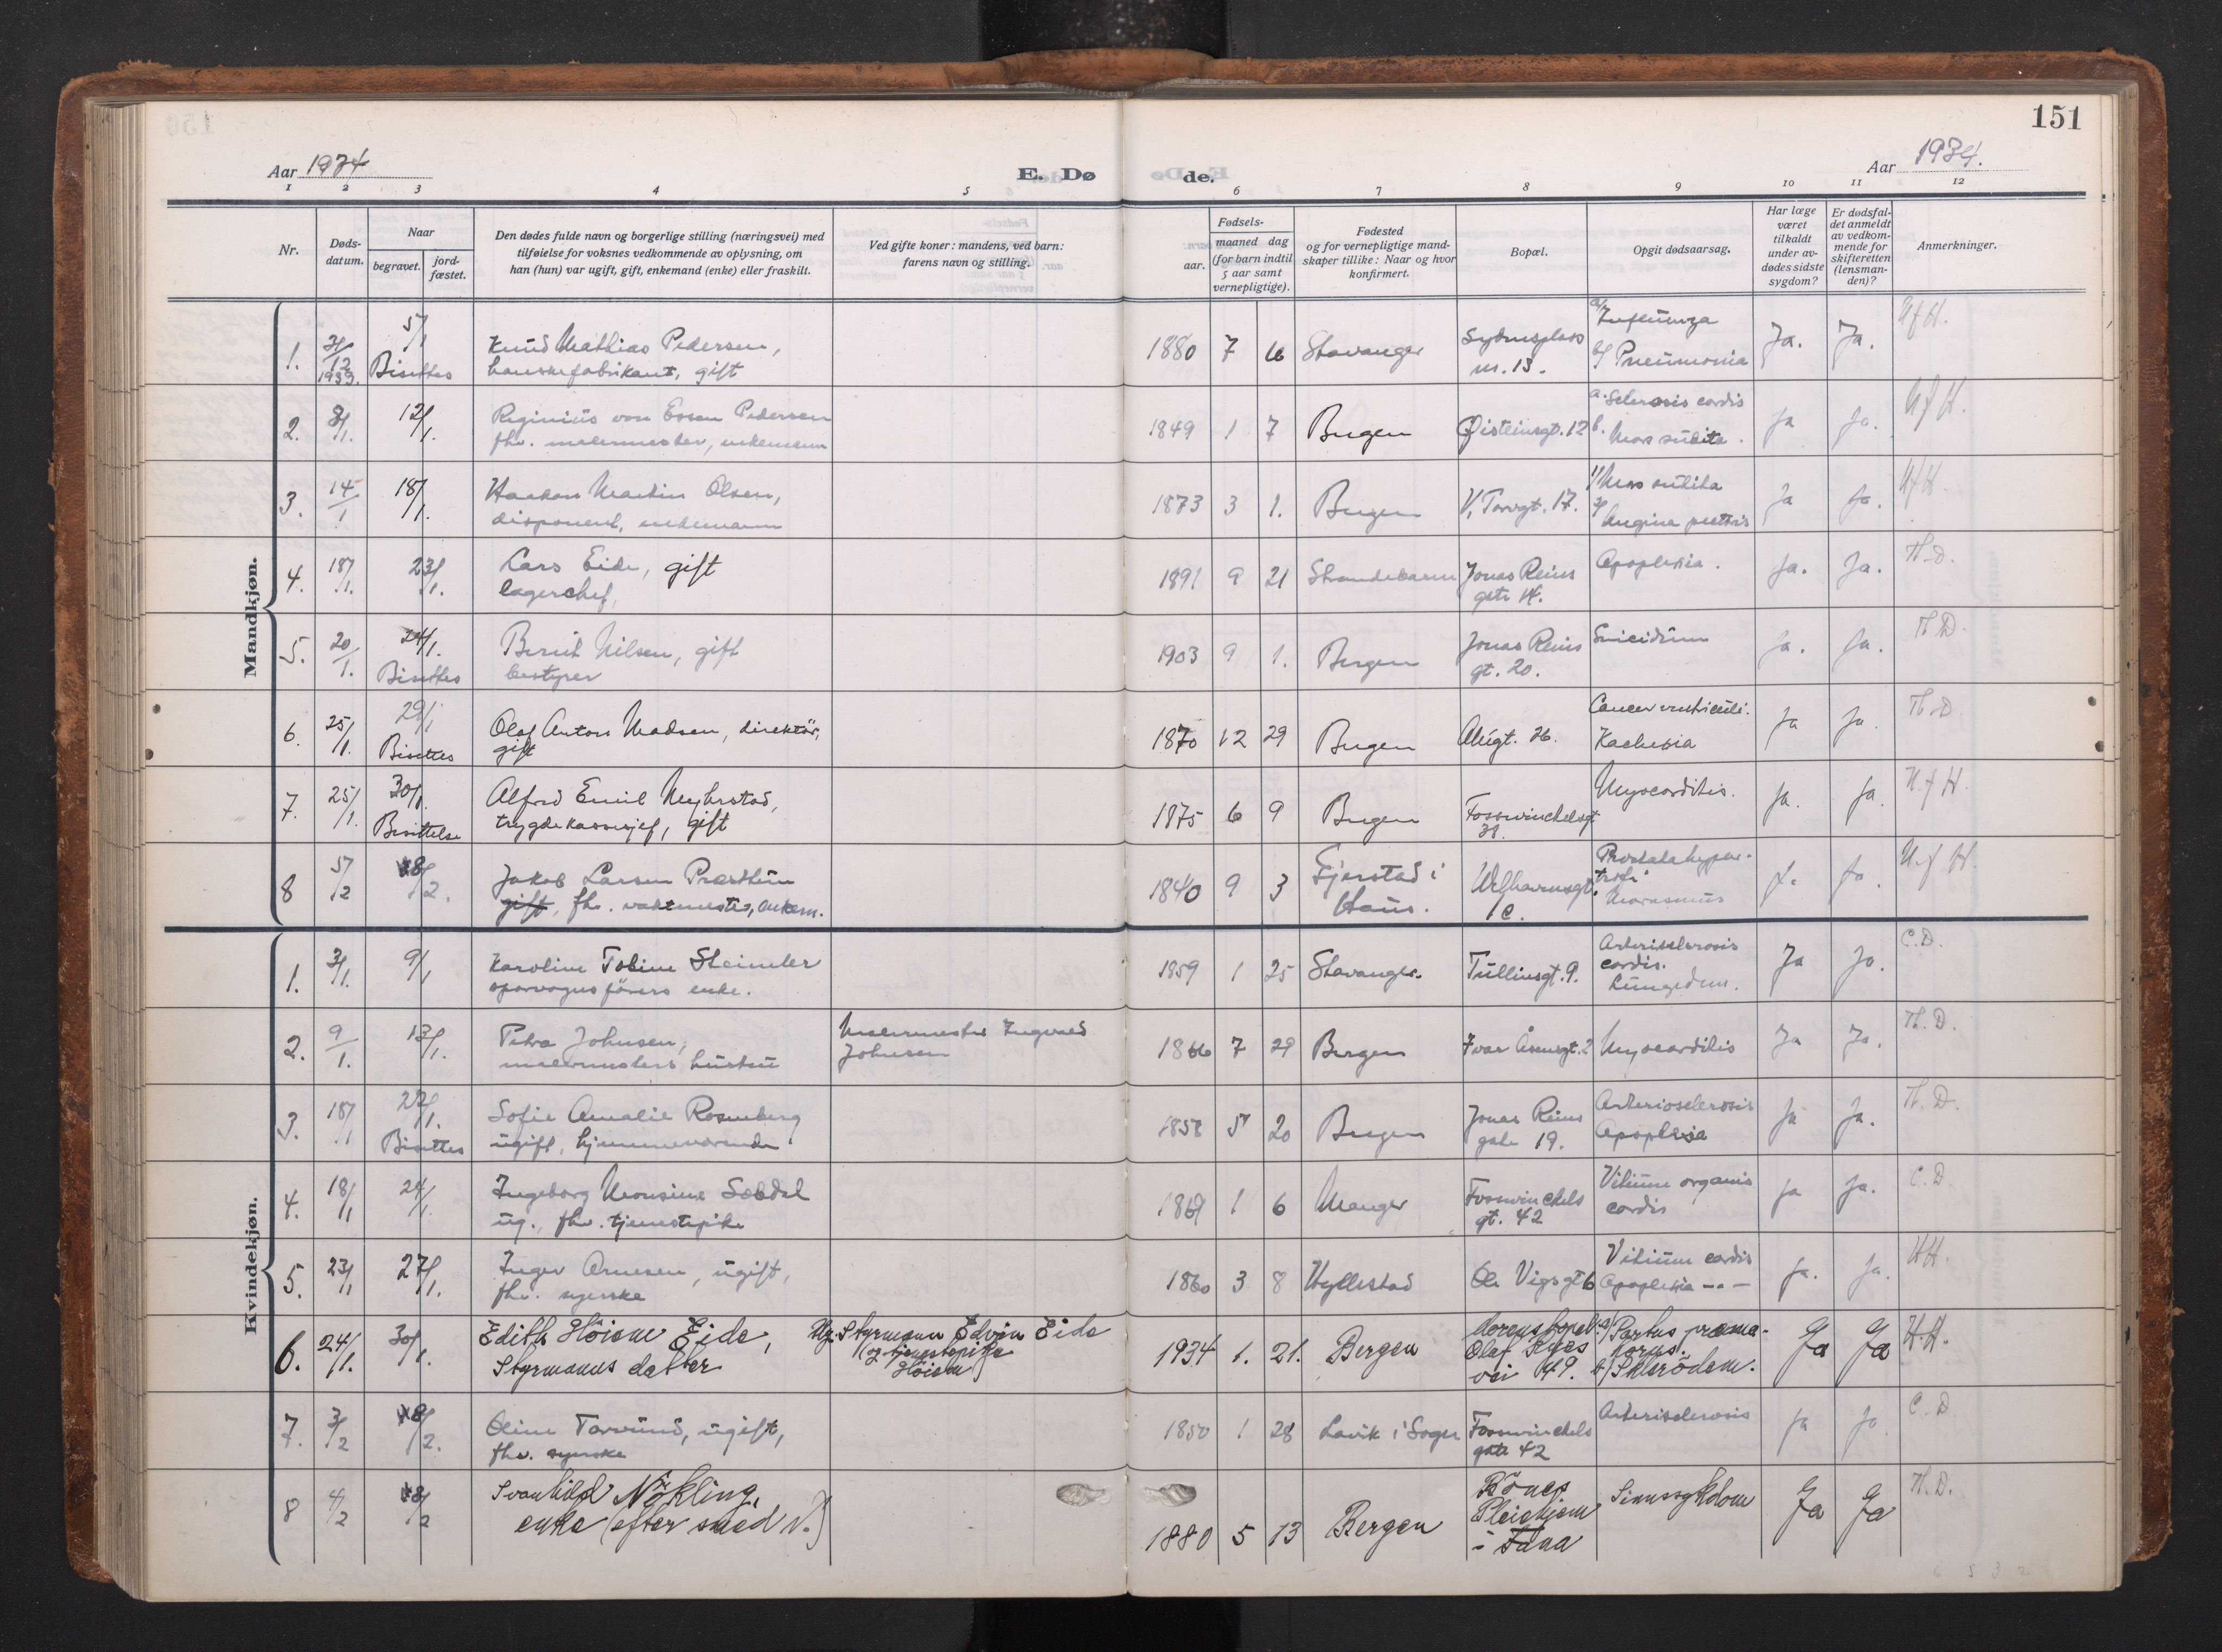 151
Aar 1934
E. Dø
de.
Aar 1934.
1 2 3 4 5 6 7 8 9 10 11 12
Nr.
Døds-
datum.
Naar
begravet.
jord-
fæstet.
Den dødes fulde navn og borgerlige stilling (næringsvei) med
tilføielse for voksnes vedkommende av oplysning, om
han (hun) var ugift, gift, enkemand (enke) eller fraskilt.
Ved gifte koner: mandens, ved barn:
farens navn og stilling.
Fødsels-
aar.
maaned dag
(for barn indtil
5 aar samt
vernepligtige).
Fødested
og for vernepligtige mand-
skaper tillike: Naar og hvor
konfirmert.
Bopæl.
Opgit dødsaarsag.
Har læge
været
tilkaldt
under av-
dødes sidste
sygdom?
Er dødsfal-
det anmeldt
av vedkom-
mende for
skifteretten
(lensman-
den)?
Anmerkninger.
Mandkjøn.
1. 31/12 1933. 5/1 Bisettes
Knud Mathias Pedersen,
hanskefabrikant, gift
1880 7 16 Stavanger
Sydnesplass
nr. 13.
a/ Influenza
b/ Pneumonia
Ja. Ja.
2. 8/1. 12/1.
Reginius von Essen Pedersen
fhv. malermester, enkemann
1849 1 7 Bergen Øisteinsgt. 12
a. Sclerosis cordis
b. Mors subita.
Ja Ja.
3. 14/1 18/1.
Haakon Martin Olsen,
disponent, enkemann
1873 3 1. Bergen V. Torvgt. 17.
1/ Mors subita
2/ Angina pectoris
Ja Ja.
4. 18/1. 23/1.
Lars Eide, gift
lagerchef,
1891 9 21 Strandebarm
Jonas Reins
gate 14.
Apoplexia.
Ja. Ja. Th.D.
5. 20/1. 24/1. Bisettes
Berut Nilsen, gift
bestyrer
1903 9 1. Bergen
Jonas Reins
gt. 20.
Suicidium
Ja. Ja. Th.D.
6. 25/1. 29/1 Bisettes
Olaf Anton Madsen, direktör,
gift
1870 12 29 Bergen Allégt. 26.
Cancer ventriculi.
Kachexia
Ja Ja. Th.D
7. 25/1. 30/1. Bisettelse
Alfred Emil Myhrstad,
trygdekassesjef, gift
1875 6 9 Bergen
Fosswinckelsgt
38.
Myocarditis.
Ja. Ja.
8 5/2 8/2.
Jakob Larsen Præsthun
gift, fhv. vaktmester, enkem.
1840 9 3
Gjerstad i
Haus.
Welhavensgt.
1c.
Prostatahyper-
trofi
Marasmus
Ja Ja.
Kvindekjøn.
1. 3/1. 9/1
Karoline Tobine Steimler
sporvognsförers enke.
1859 1 25 Stavanger. Tullinsgt. 9.
Arteriosclerosis
cordis.
Lungedem.
Ja Ja. C.D.
2. 9/1. 13/1.
Petra Johnsen,
malermesters hustru
Malermester Ingvald
Johnsen
1866 7 29 Bergen Ivar Åsensgt. 2 Myocarditis
Ja Ja. Th.D.
3. 18/1 22/1. Bisettes
Sofie Amalie Rosenberg
ugift, hjemmeværende
1858 5 20 Bergen
Jonas Reins
gate 19.
Arteriosclerosis
Apoplexia
Ja Ja. Th.D.
4. 18/1 24/1.
Ingeborg Monsine Sæbdal
ug., fhv. tjenestepike
1869 1 6 Manger
Fosswinckels
gt. 42
Vitium organis
cordis
Ja Ja. C.D
5. 23/1 27/1.
Inger Arnesen, ugift,
fhv. syerske
1860 3 8 Hyllestad Ole Vigs gt 6
Vitium cordis
Apoplexia -"-
Ja. Ja. H.H.
6. 24/1. 30/1.
Edith Höisne Eide,
Styrmanns datter
Ug. Styrmann Edvin Eide
(og tjenestepike
Höisne)
1934 1. 21. Bergen
Morens bopel:
Olaf Ryes
vei 49.
a) Partus præma-
torus.
b) Sklerödem.
Ja Ja H.H.
7. 3/2 8/2.
Oline Torvund, ugift,
fhv. syerske
1850 1 28 Lavik i Sogn
Fosswinckels
gate 42
Arteriosclerosis
Ja Ja C.D
8 4/2 8/2
Svanhild Nökling,
enke (efter smed N.)
1880 5 13 Bergen
Rönes
Pleiehjem
i Fana
Sinnssykdom
Ja Ja Th.D.